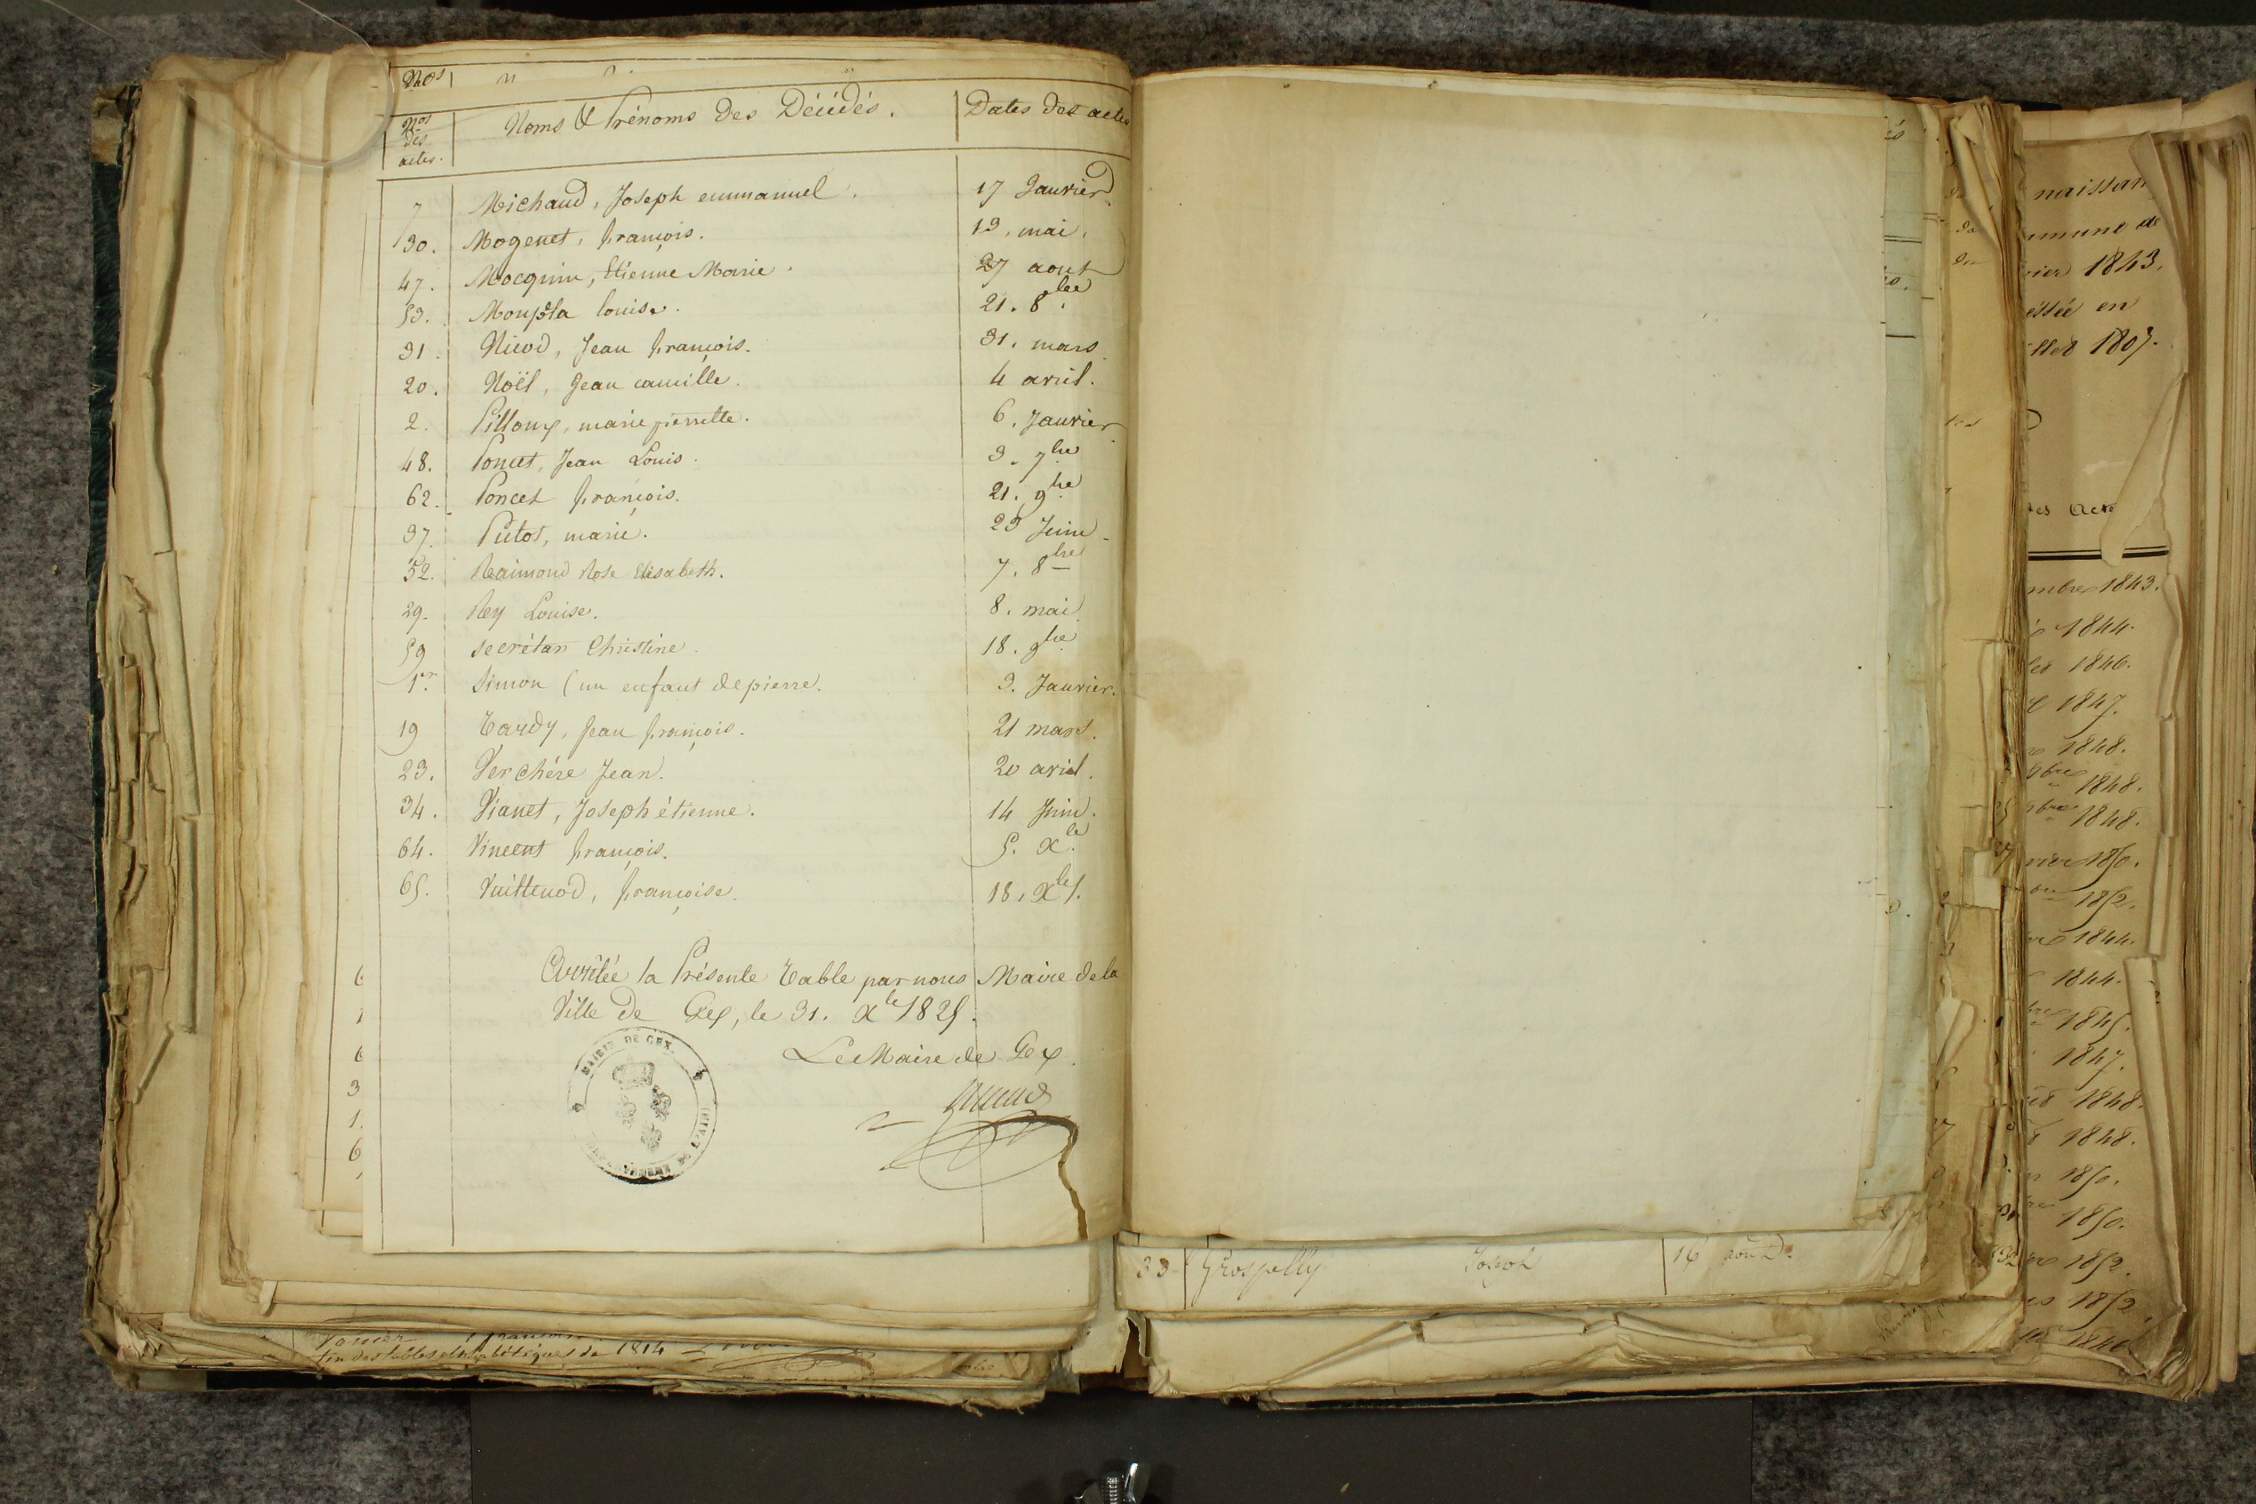 Nos
Nos des actes. Noms & Prénoms des Décédés. Dates des actes
7 Michaud, Joseph emmanuel. 17 Janvier.
30. Mogenet, françois. 13. mai.
47. Mocquin, Etienne Marie. 27 aout
53. louise. 21. 8bre.
31. Nicod, Jean françois. 31. mars.
20. Noël, Jean camille. 4 avril.
2. Pilloux, marie pierrette. 6. Janvier.
48. Poncet, Jean Louis. 3. 7bre
62. Poncet françois. 21. 9bre
37. Putod, marie. 23 Juin.
52. Raimond Rose Elisabeth. 7. 8bre
29. Rey Louise. 8. mai.
59 Secrétan Christine. 18. 9bre
1er. Simon (un enfant de pierre. 3. Janvier.
19 Tardy, Jean françois. 21 mars.
23. Verchère Jean. 20 avril.
34. Vianet, Joseph étienne. 14 Juin.
64. Vincent françois. 5. Xbre.
65. Vuillenod, françoise. 18. Xbre.
Arrêtée la Présente Table par nous Maire de la
Ville de Gex, le 31. Xbre 1825.
Le Maire de Gex.
MAIRIE DE GEX.
DÉPARTEMENT DE L'AIN
33 Grospelly Joseph 16
fin des tables alphabétiques de 1814
naissan
mmune de
vrier 1843.
en
1807.
des Actes
mbre 1843.
1844.
1846.
1847.
1848.
9bre 1848.
1848.
vrier 1850.
1852.
1844.
1844.
1845.
1847.
1848.
1848.
1850.
1850.
1852.
1852
1846